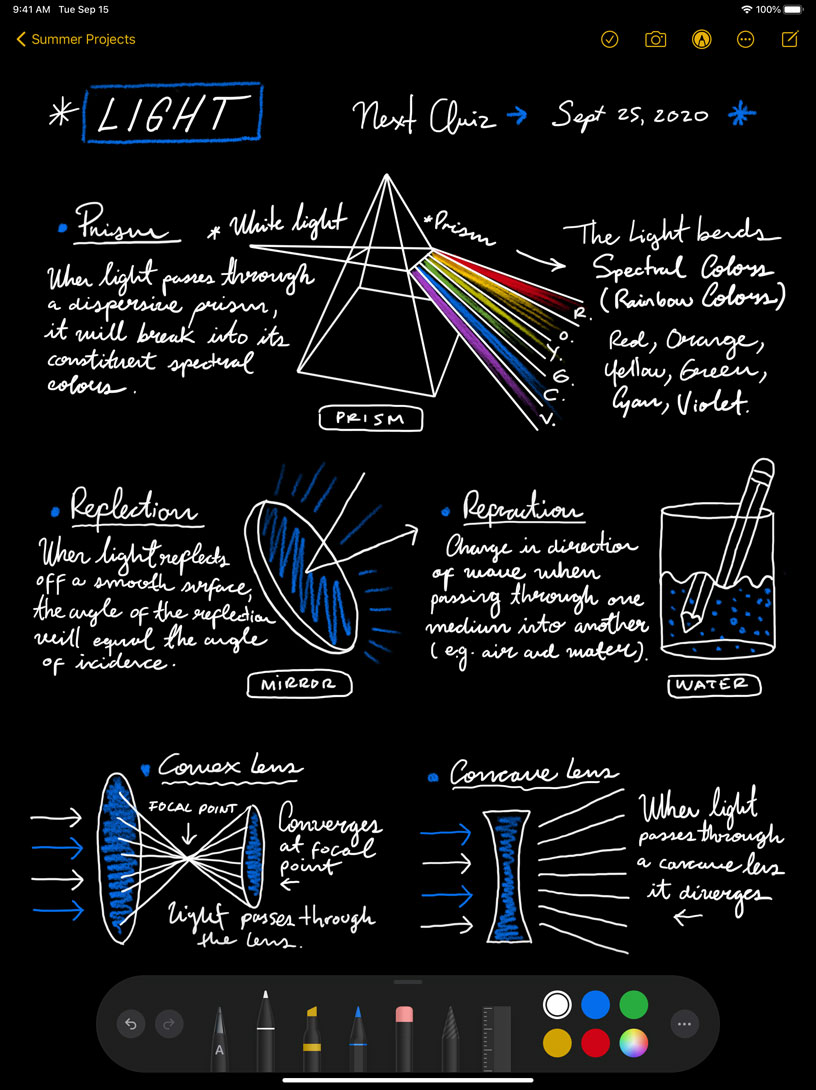 9:41 AM Tue Sep 15
100%
Summer Projects
* LIGHT
Next Quiz → Sept 25, 2020 *
• Prism
* White light
* Prism
When light passes through
a dispersive prism,
it will break into its
constituent spectral
colours.
The Light bends
Spectral Colors
(Rainbow Colors)
Red, Orange,
Yellow, Green,
Cyan, Violet.
R.
O.
Y.
G.
C.
V.
PRISM
• Reflection
When light reflects
off a smooth surface,
the angle of the reflection
will equal the angle
of incidence.
MIRROR
• Refraction
Change in direction
of wave when
passing through one
medium into another
(e.g. air and water).
WATER
• Convex Lens
FOCAL POINT
Converges
at focal
point
←
Light passes through
the lens.
• Concave Lens
When light
passes through
a concave lens
it diverges
←
A